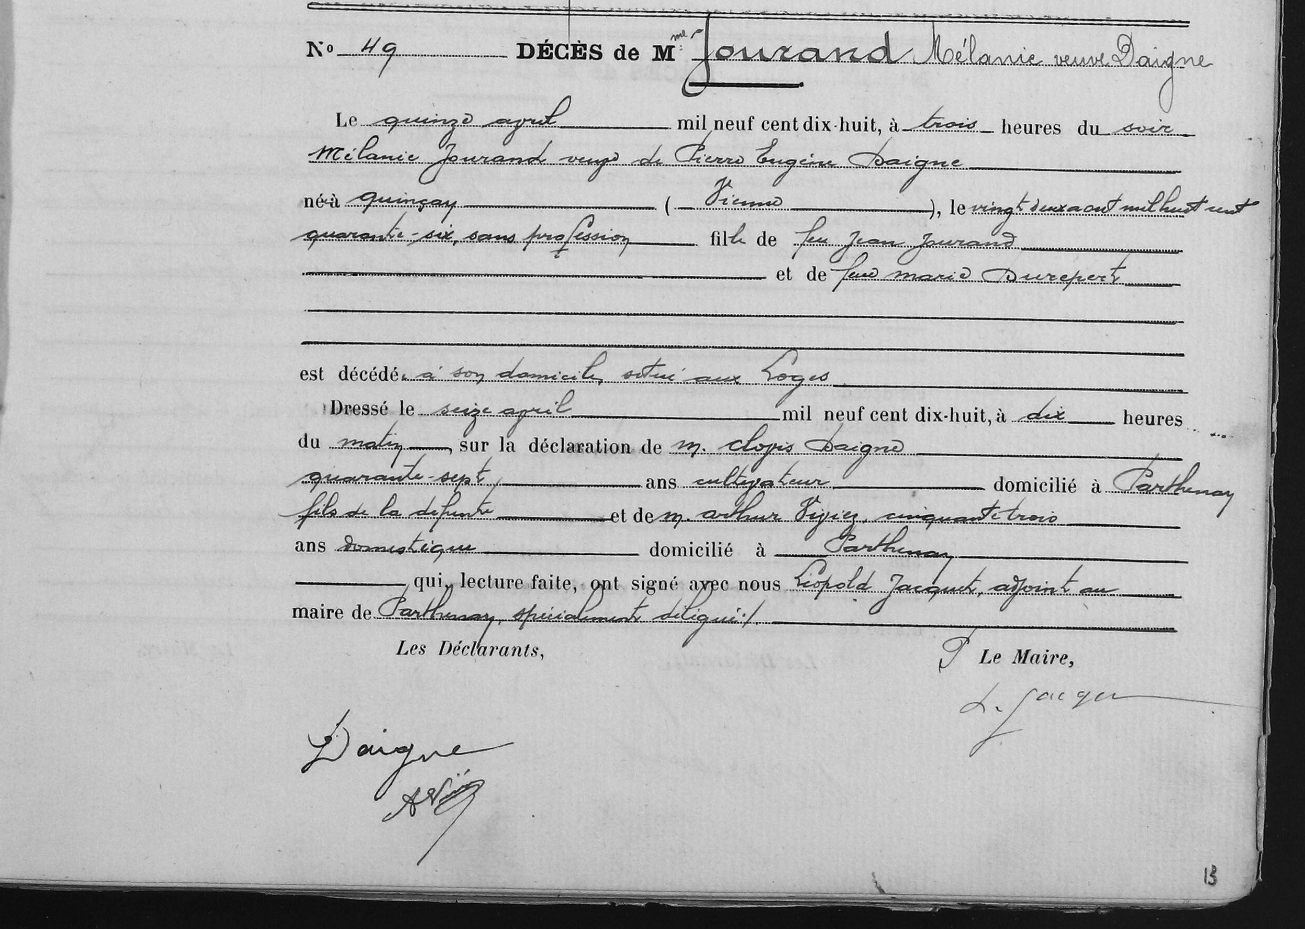 No 49 DÉCÈS de Mme Jourand Mélanie veuve Daigne
Le quinze avril mil neuf cent dix-huit, à trois heures du soir
Mélanie Jourand veuve de Pierre Eugène Daigne
née à Quinçay (Vienne), le vingt deux aout mil huit cent
quarante-six, sans profession fille de feu Jean Jourand
et de feue Marie Durepert
est décédée à son domicile, situé aux Loges
Dressé le seize avril mil neuf cent dix-huit, à dix heures
du matin, sur la déclaration de M. Clovis Daigne
quarante-sept, ans cultivateur domicilié à Parthenay
fils de la défunte et de M. Arthur Vivien, cinquante trois
ans domestique domicilié à Parthenay
qui, lecture faite, ont signé avec nous Léopold Jacquet, adjoint au
maire de Parthenay, spécialement délégué ./.
Les Déclarants, P Le Maire,
L. Jacquet
Daigne
13